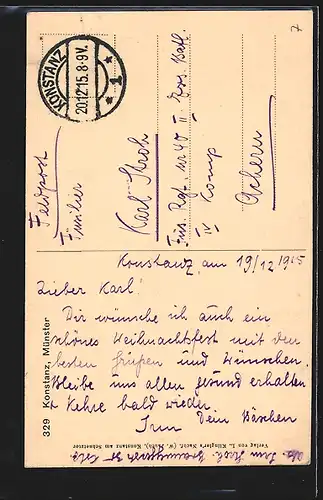 KONSTANZ
20.12.15. 8-9 V.
* 1 *
7
Feldpost
Füsilier
Karl Stroh
Füs. Rgt. nr 40 II Ers. Batl.
IV Komp
Achern
Konstanz, am 19/12 1915
Lieber Karl!
Dir wünsche ich auch ein
schönes Weihnachtsfest mit den
besten Grüßen und Wünschen.
Bleibe uns allen gesund erhalten
+ Kehre bald wieder
Dein Bäschen
329 Konstanz, Münster
Verlag von
Konstanz am Schnetztor